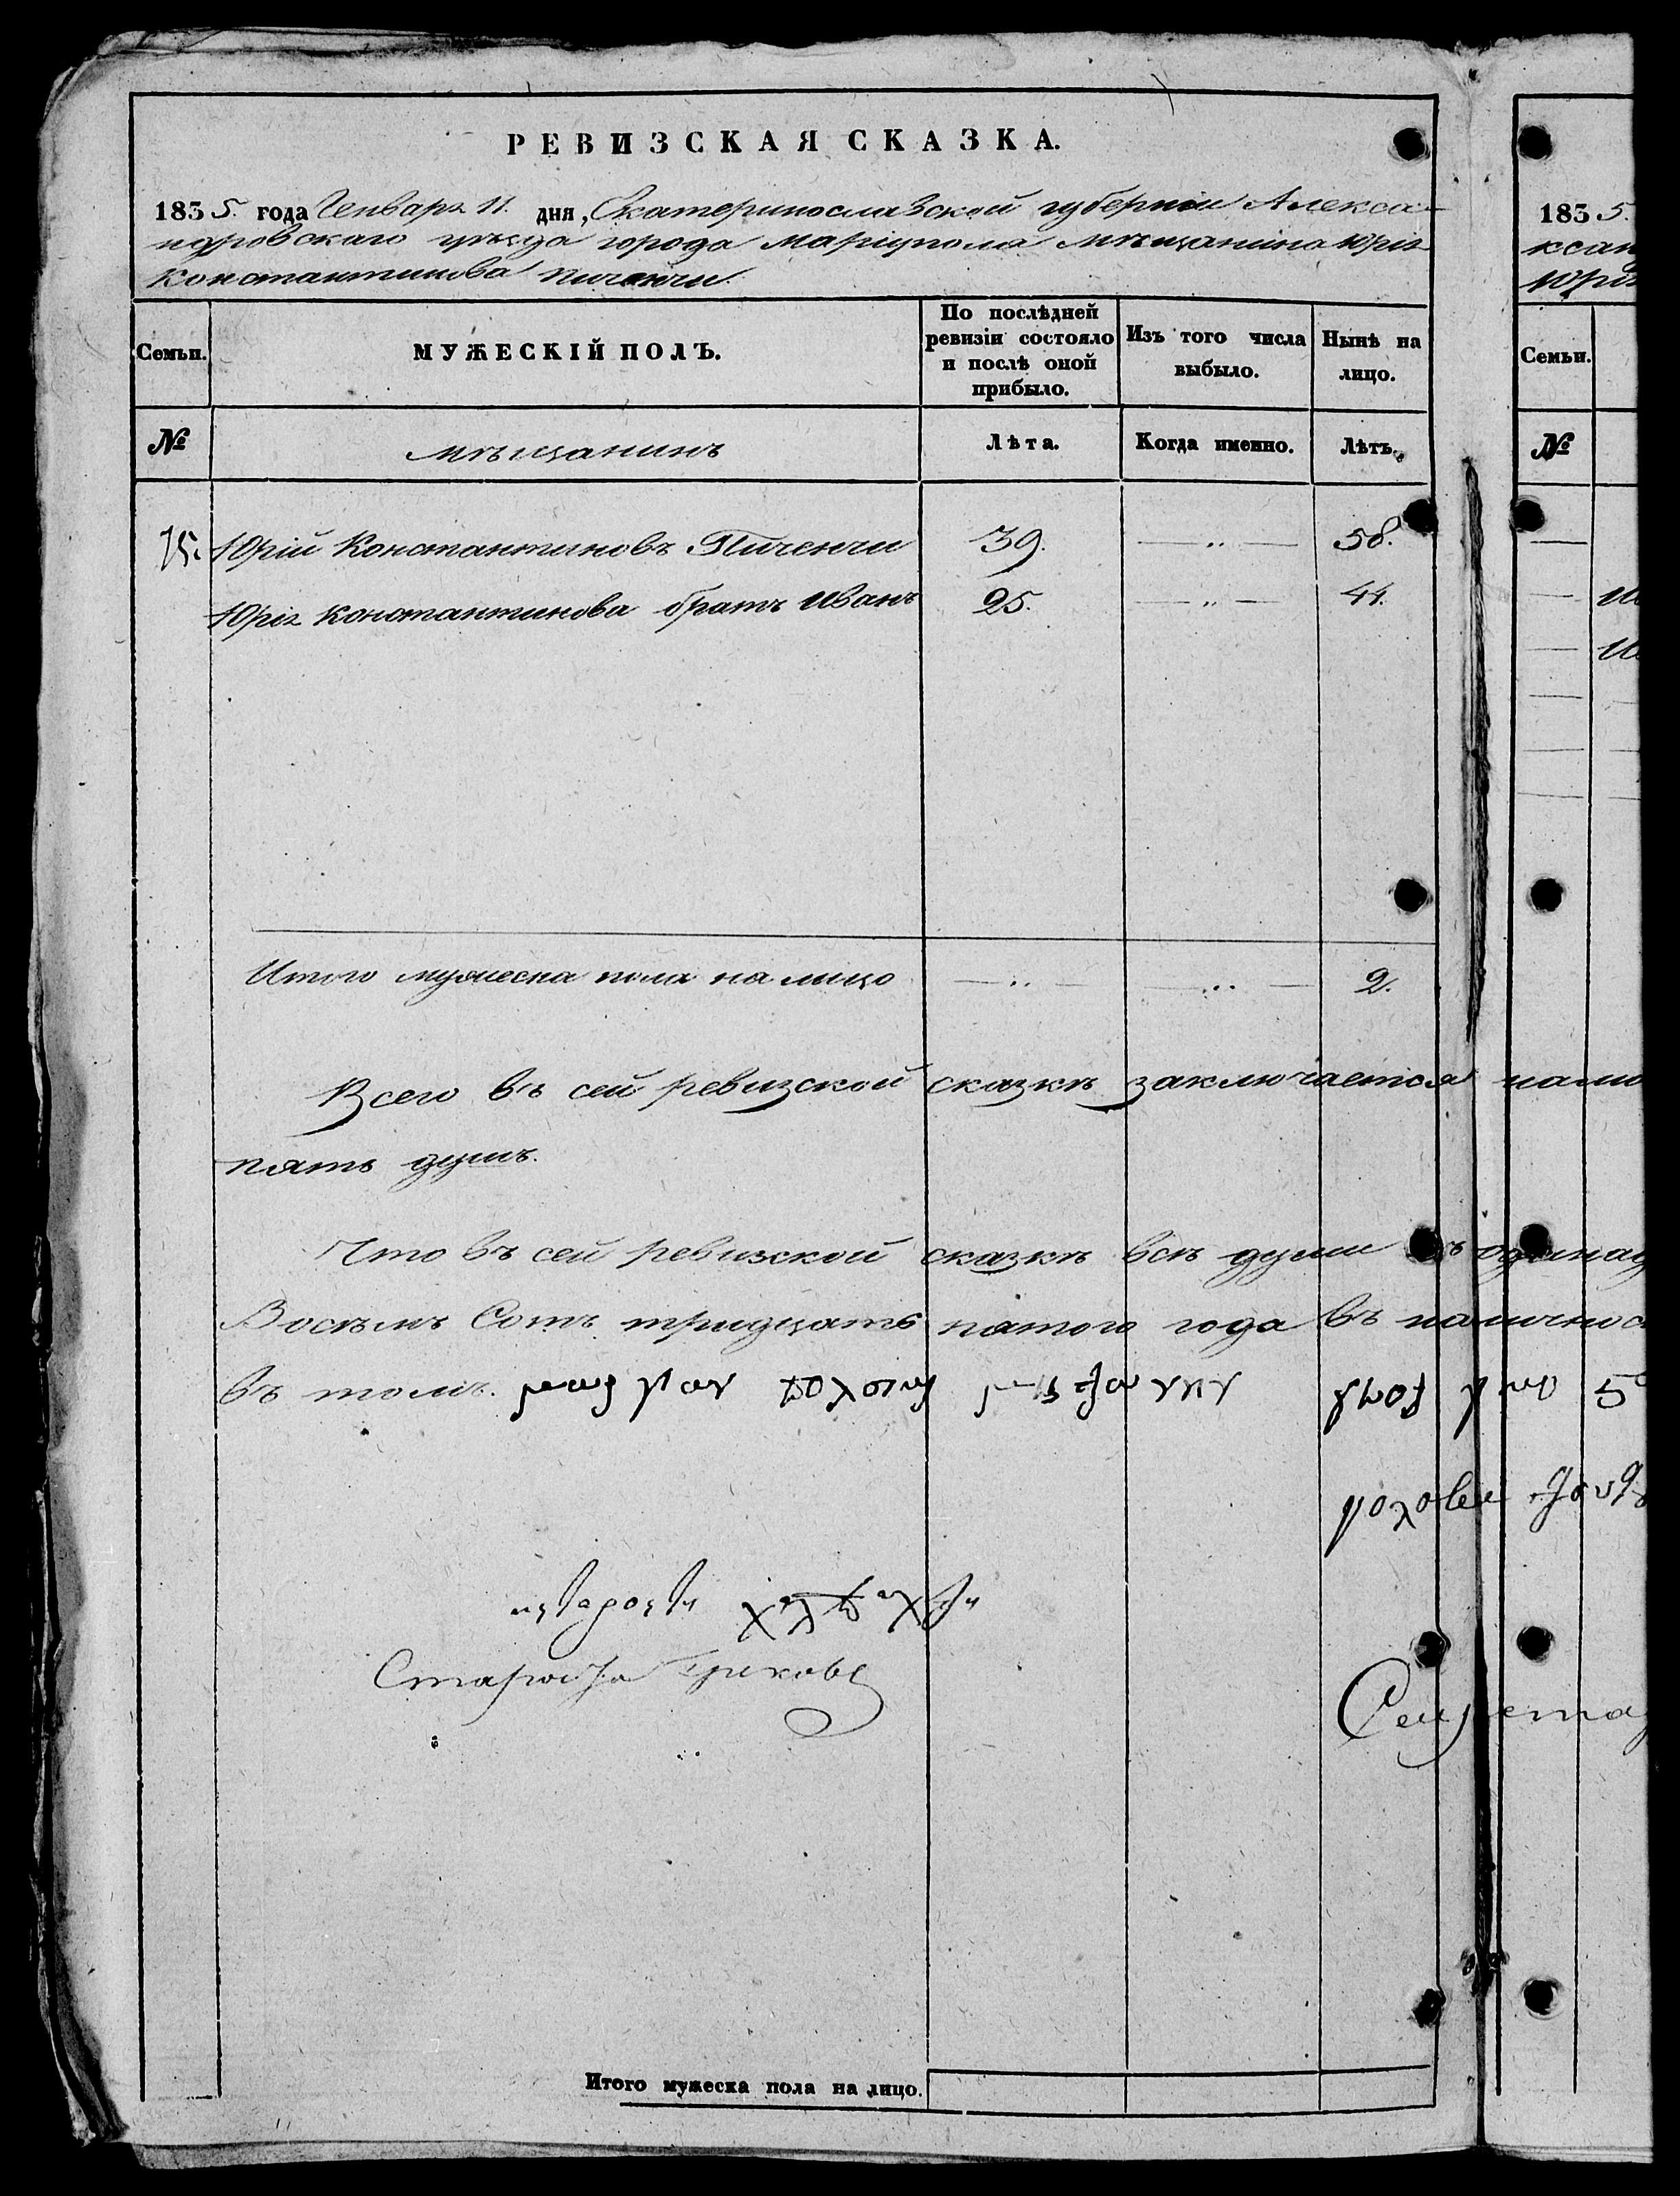 РЕВИЗСКАЯ СКАЗКА.
1835. года Генваря 11. дня, Екатеринославской губернии Алекса-
ндровскаго уѣзда города Мариуполя мѣщанина Юрія
Константинова Пиченчи
Семьи. МУЖЕСКІЙ ПОЛЪ. По послѣдней ревизіи состояло и послѣ оной прибыло. Изъ того числа выбыло. Нынѣ на лицо.
№ мѣщанинъ Лѣта. Когда именно. Лѣтъ.
75. Юрій Константиновъ Пиченчи 39. — „ — 58.
Юрія Константинова братъ Иванъ 25. — „ — 44.
Итого мужеска пола на лицо — „ — — „ — 2.
Всего въ сей ревизской сказкѣ заключается нали
пять душъ.
Что въ сей ревизской сказкѣ всѣ души въ одинад
Восѣмъ Сотъ тридцать пятого года въ наличнос
въ томъ.
Староста Грековъ
Секрета
Итого мужеска пола на лицо.
1835.
ксан
Юрія
Семьи.
№